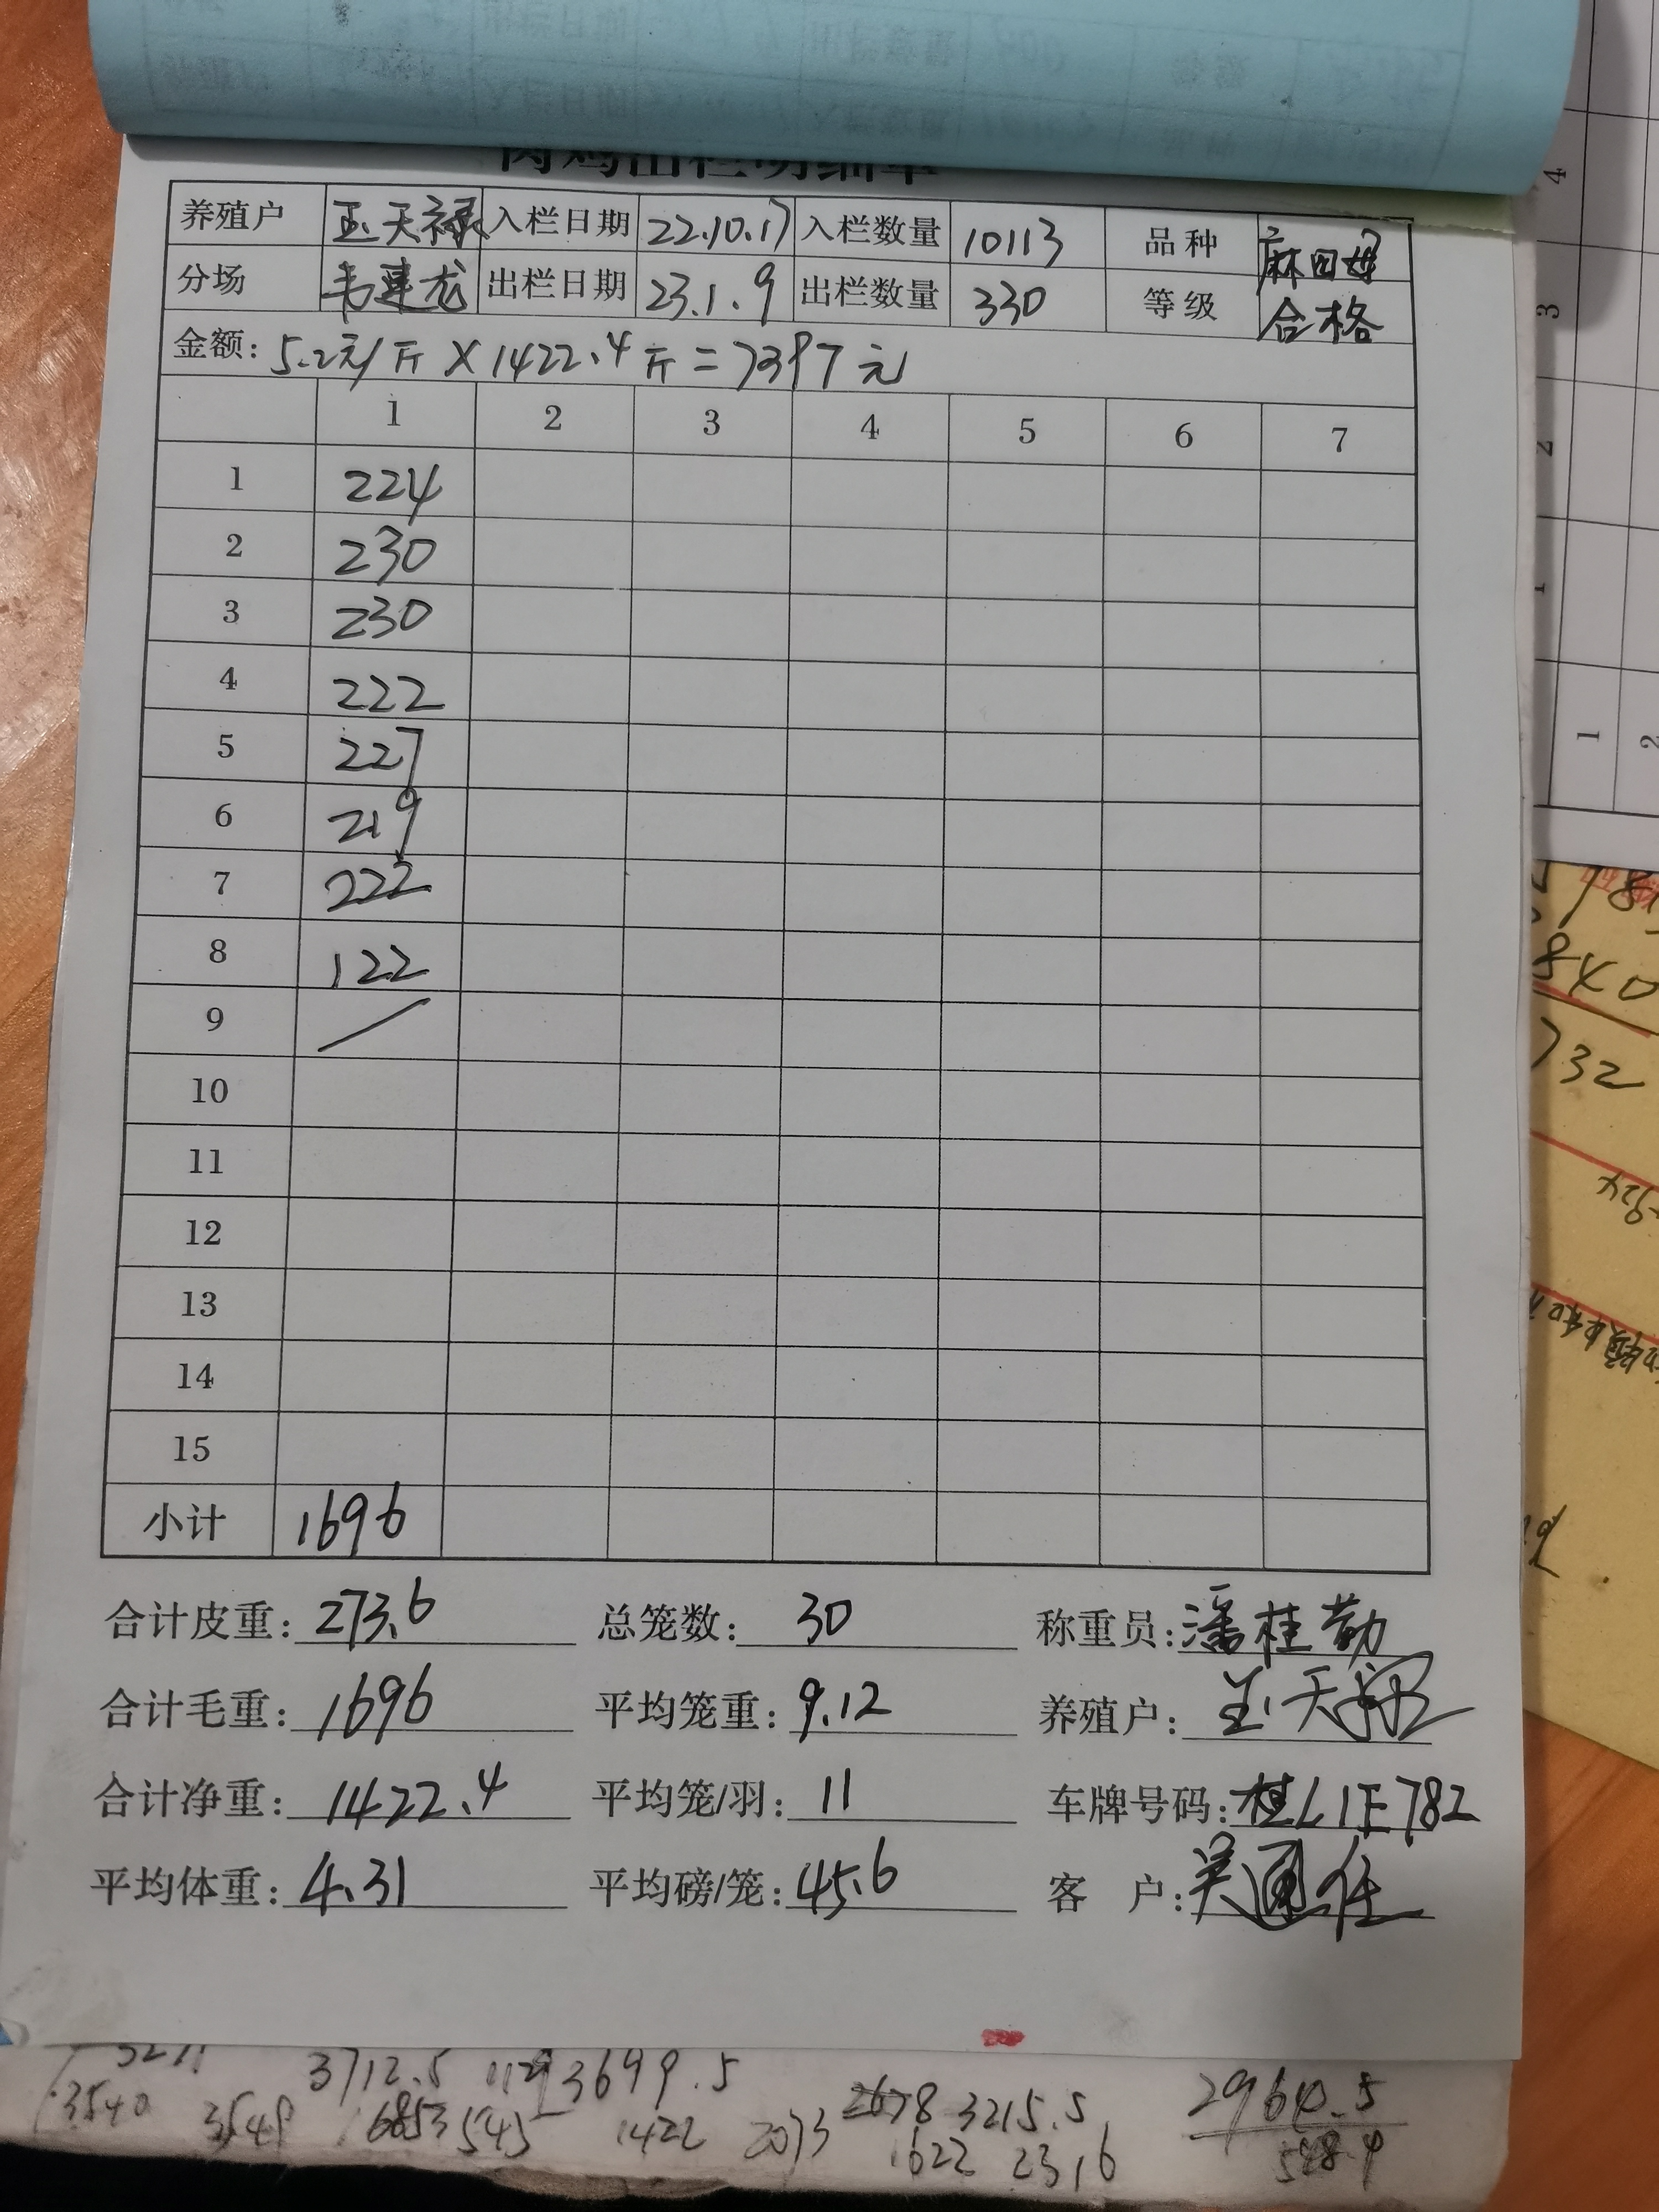 肉鸡出栏明细单
养殖户 玉天禄 入栏日期 22.10.17 入栏数量 10113 品种 麻四母
分场 韦建龙 出栏日期 23.1.9 出栏数量 330 等级 合格
金额: 5.2元/斤 X 1422.4斤 = 7397元
1 2 3 4 5 6 7
1 224
2 230
3 230
4 222
5 227
6 219
7 222
8 122
9
10
11
12
13
14
15
小计 1696
合计皮重: 273.6 总笼数: 30 称重员: 潘桂勤
合计毛重: 1696 平均笼重: 9.12 养殖户: 玉天
合计净重: 1422.4 平均笼/羽: 11 车牌号码: 桂L1E782
平均体重: 4.31 平均磅/笼: 45.6 客 户: 吴通任
3712.5 1129 3699.5
3540 3549 6853 545 1422 2073 2678 3215.5 2964.5
1622 23,6 548.4
4
3
2
1
1 2
840
732